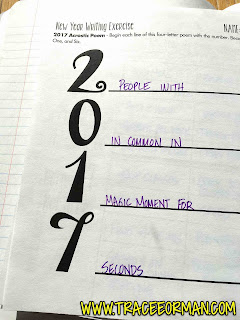 New Year Writing Exercise
NAME
2017 Acrostic Poem - Begin each line of this four-letter poem with the number.
One, and Six.
2 PEOPLE WITH
0 IN COMMON IN
1 MAGIC MOMENT FOR
7 SECONDS
WWW.TRACEEORMAN.COM